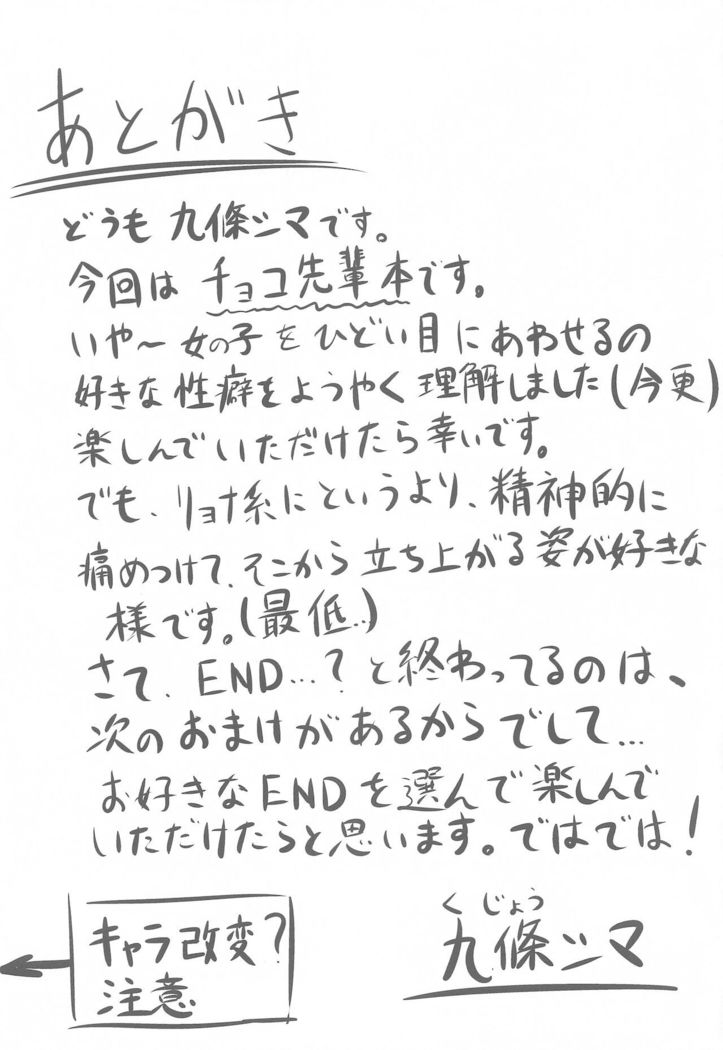 あとがき
どうも九條シマです。
今回はチョコ先輩本です。
いや～女の子をひどい目にあわせるの
好きな性癖をようやく理解しました(今更)
楽しんでいただけたら幸いです。
でも、リョナ系にというより、精神的に
痛めつけて、そこから立ち上がる姿が好きな
様です。(最低…)
さて、END…？と終わってるのは、
次のおまけがあるからでして…
お好きなENDを選んで楽しんで
いただけたらと思います。ではでは！
キャラ改変？
注意
くじょう
九條シマ